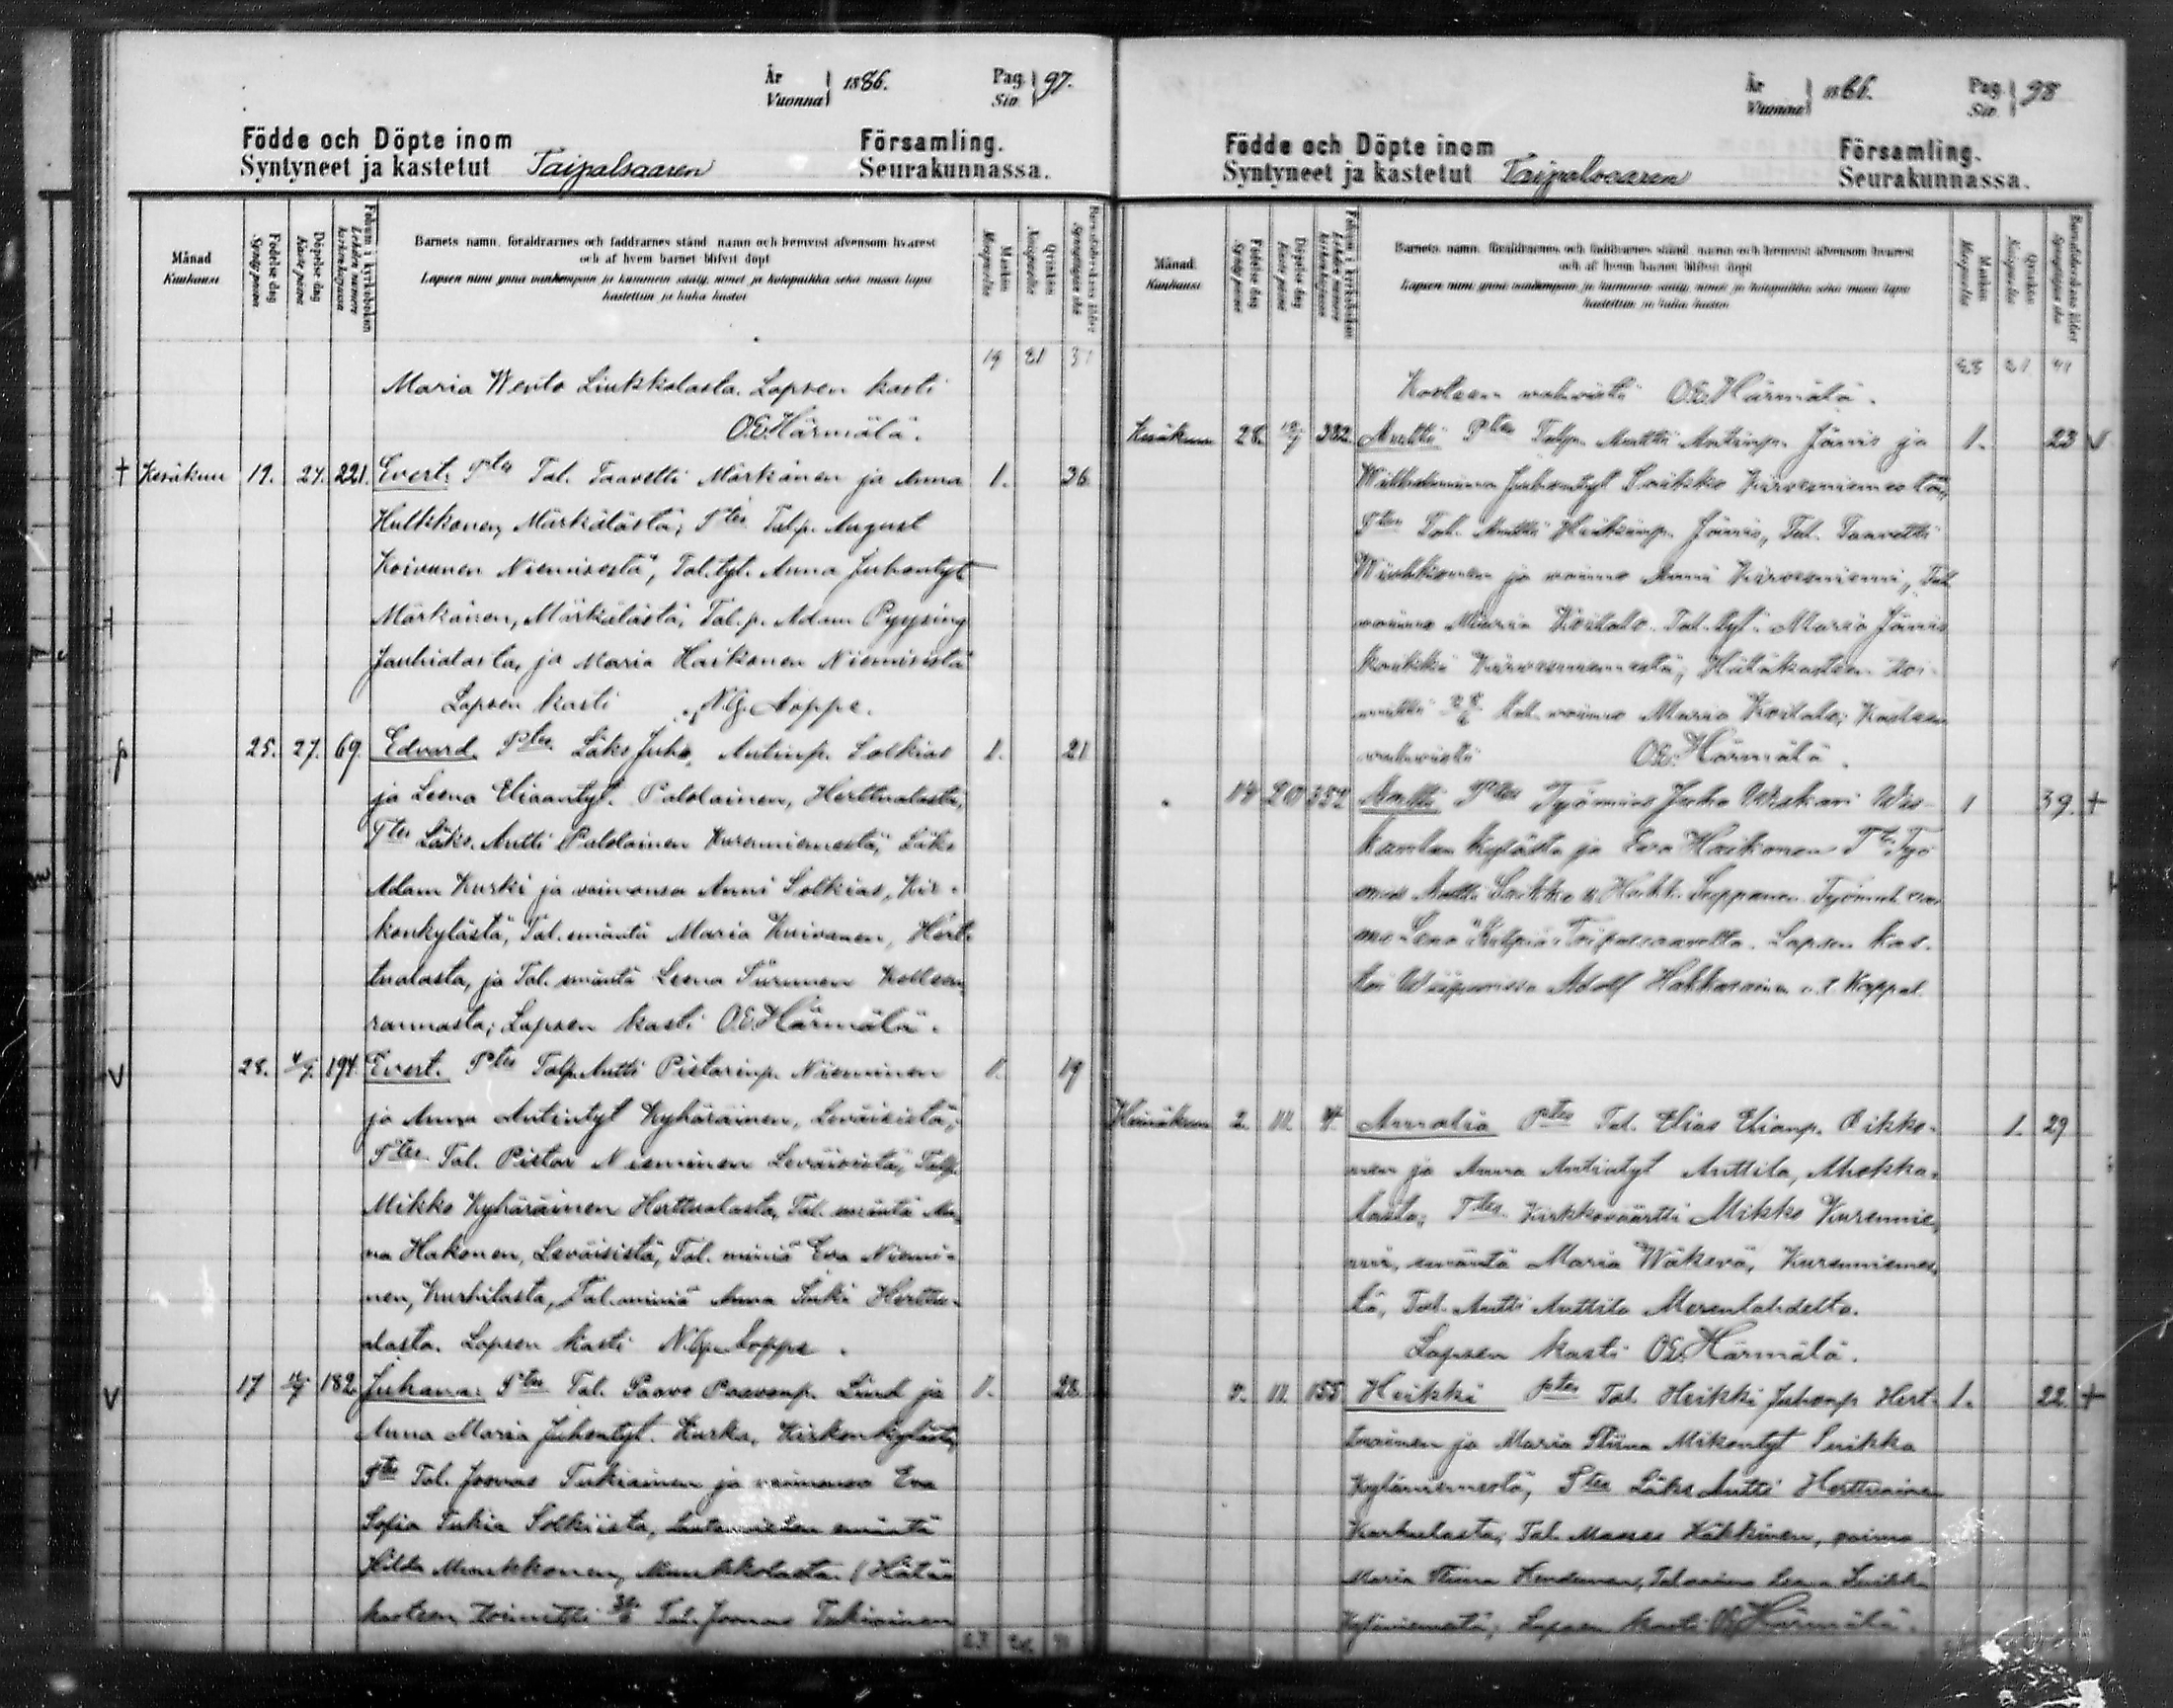 År
Vuonna
1886.
Pag.
Siv.
97.
Födde och Döpte inom
Församling.
Syntyneet ja kastetut Taipalsaaren Seurakunnassa.
Månad
Kuukausi
Födelse dag
Syntymä päivä
Döpelse dag
Kaste päivä
Barnets namn, föräldrarnes och faddrarnes stånd, namn och hemvist äfvensom hvarest
och af hvem barnet blifvit döpt
Lapsen nimi ynnä vanhempain ja kummein sääty, nimet ja kotopaikka sekä missä lapsi
kastettiin ja kuka kastoi
Mankön
Miespuolia
Qvinkön
Naispuolia
19 21 31
Maria Wento Liukkolasta. Lapsen kasti
O.E. Härmälä.
+ Kesäkuu 19. 27. 221. Evert. Ptes Tal. Taavetti Märkänen ja Anna 1. 36
Hulkkonen, Märkälästä; Ttes Talp. August
Koivunen Niemisestä, Tal.tyt. Anna Juhontyt
Märkänen, Märkälästä, Tal.p. Adam Pyysing
Jauhialasta, ja Maria Haikonen Niemisistä
Lapsen kasti N.G. Hoppe.
p 25. 27. 69. Edvard. Ptes. Läks Juho, Antinp. Solkias 1. 21
ja Leena Eliaantyt. Paldainen, Herttualasta,
Ttes Läks. Antti Paldainen Kurenniemestä, Läks
Adam Kurki ja vaimonsa Anni Solkias, Kir-
konkylästä, Tal. emäntä Maria Kuivanen, Hert-
tualasta, ja Tal. emäntä Leena Turunen
rannasta; Lapsen kasti O.E. Härmälä.
V 28. 4/7 194. Evert. Ptes Talp. Antti Pietarinp. Nieminen 1. 19
ja Anna Antintyt Kyhäräinen, Leväisistä,
Ttes Tal. Pietar Nieminen Leväisistä, Talp.
Mikko Kyhäräinen Herttualasta, Tal. emäntä An-
na Hakonen, Leväisistä, Tal. miniä Eva Niemi-
nen, Kurhilasta, Tal. miniä Anna Herttu-
alasta. Lapsen kasti N.G. Hoppe.
V 17 182 Juhana. Ptes Tal. Paavo Paavonp. Lind ja 1. 28
Anna Maria Juhontyt. Kurka, Kirkonkylästä,
Ttes Tal. Joonas Tukiainen ja vaimonsa Eva
Sofia Tukia Solkiista, emäntä
Hilda Munkkonen, Munkkolasta. (Hätä-
kasteen toimitti Tal. Joonas Tukiainen
År
Vuonna
1886.
Pag.
Siv.
98
Födde och Döpte inom
Församling.
Syntyneet ja kastetut Taipalsaaren Seurakunnassa.
Månad
Kuukausi
Födelse dag
Syntymä päivä
Döpelse dag
Kaste päivä
Barnets namn, föräldrarnes och faddrarnes stånd, namn och hemvist äfvensom hvarest
och af hvem barnet blifvit döpt
Lapsen nimi ynnä vanhempain ja kummein sääty, nimet ja kotopaikka sekä missä lapsi
kastettiin ja kuka kastoi
Mankön
Miespuolia
Qvinkön
Naispuolia
21 41
Kasteen vahvisti O.E. Härmälä.
Kesäkuu 28. 382. Antti Ptes Talp. Antti Antinp. Jänis ja 1. 23 V
Wilhelmiina Juhontyt Saikko Kirvesniemestä,
Ttes Tal. Antti Heikinp. Jänis, Tal. Taavetti
ja vaimo Anni Kirvesniemi, Tal.
vaimo Maria Koitalo. Tal. tyt. Maria Jänis
kaikki Kirvesniemestä; Hätäkasteen toi-
mitti Tal. vaimo Maria Koitalo; Kasteen
vahvisti O.E. Härmälä.
14 20 352 Matti Ptes Työmies Juho Wiskari Wis- 1 39. +
karilan kylästä ja Eva Haikonen Ttes Työ
mies Matti Saikko Seppänen. Työmieh. vai
mo Lena Taipalsaarelta. Lapsen kas-
toi Wiipurissa Adolf Hakkarainen v.t. Kappal.
Heinäkuu 2. 11. Amalia Ptes Tal. Elias Elianp. Oikko- 1. 29
nen ja Anna Antintyt Anttila,
lasta; Ttes. Kirkkoväärtti Mikko Kurennie-
mi, emäntä Maria Wäkevä, Kurenniemes-
tä, Tal. Antti Anttila Merenlahdelta.
Lapsen kasti O.E. Härmälä.
11. 155 Heikki Ptes Tal. Heikki Juhonp. Hert- 1. 22. +
tuainen ja Maria Stiina Mikontyt Suikka
Kyläniemestä, Ttes Läks Antti Herttuainen
Karhulasta; Tal. Häkkinen, vaimo
Maria Stiina, Tal vaimo Leena Suikka
Kyläniemestä; Lapsen kasti O.E. Härmälä.